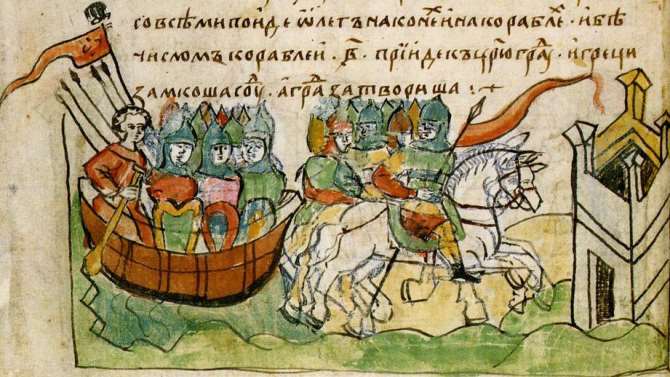 со всѣми поиде ѡлегъ на конеⷯ и на кораблеⷯ · и бѣ
числомъ кораблеи · в҃ · прїиде къ цр҃ю граⷣ · и греци
замкоша соуⷣ · а граⷣ затвориша :·